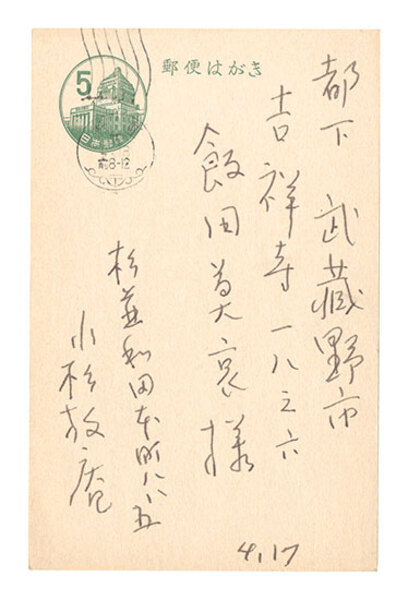 郵便はがき
5
日本郵便
前8-12
都下 武蔵野市
吉祥寺一八三六
飯田莫哀様
杉並和田本町八八五
小杉放庵
4.17